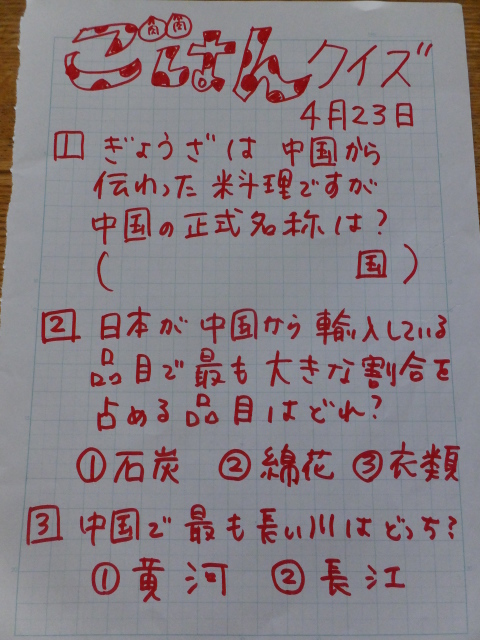 ごはんクイズ
4月23日
1 ぎょうざは中国から
伝わった料理ですが
中国の正式名称は?
( 国)
2 日本が中国から輸入している
品目で最も大きな割合を
占める品目はどれ?
①石炭 ②綿花 ③衣類
3 中国で最も長い川はどっち?
①黄河 ②長江